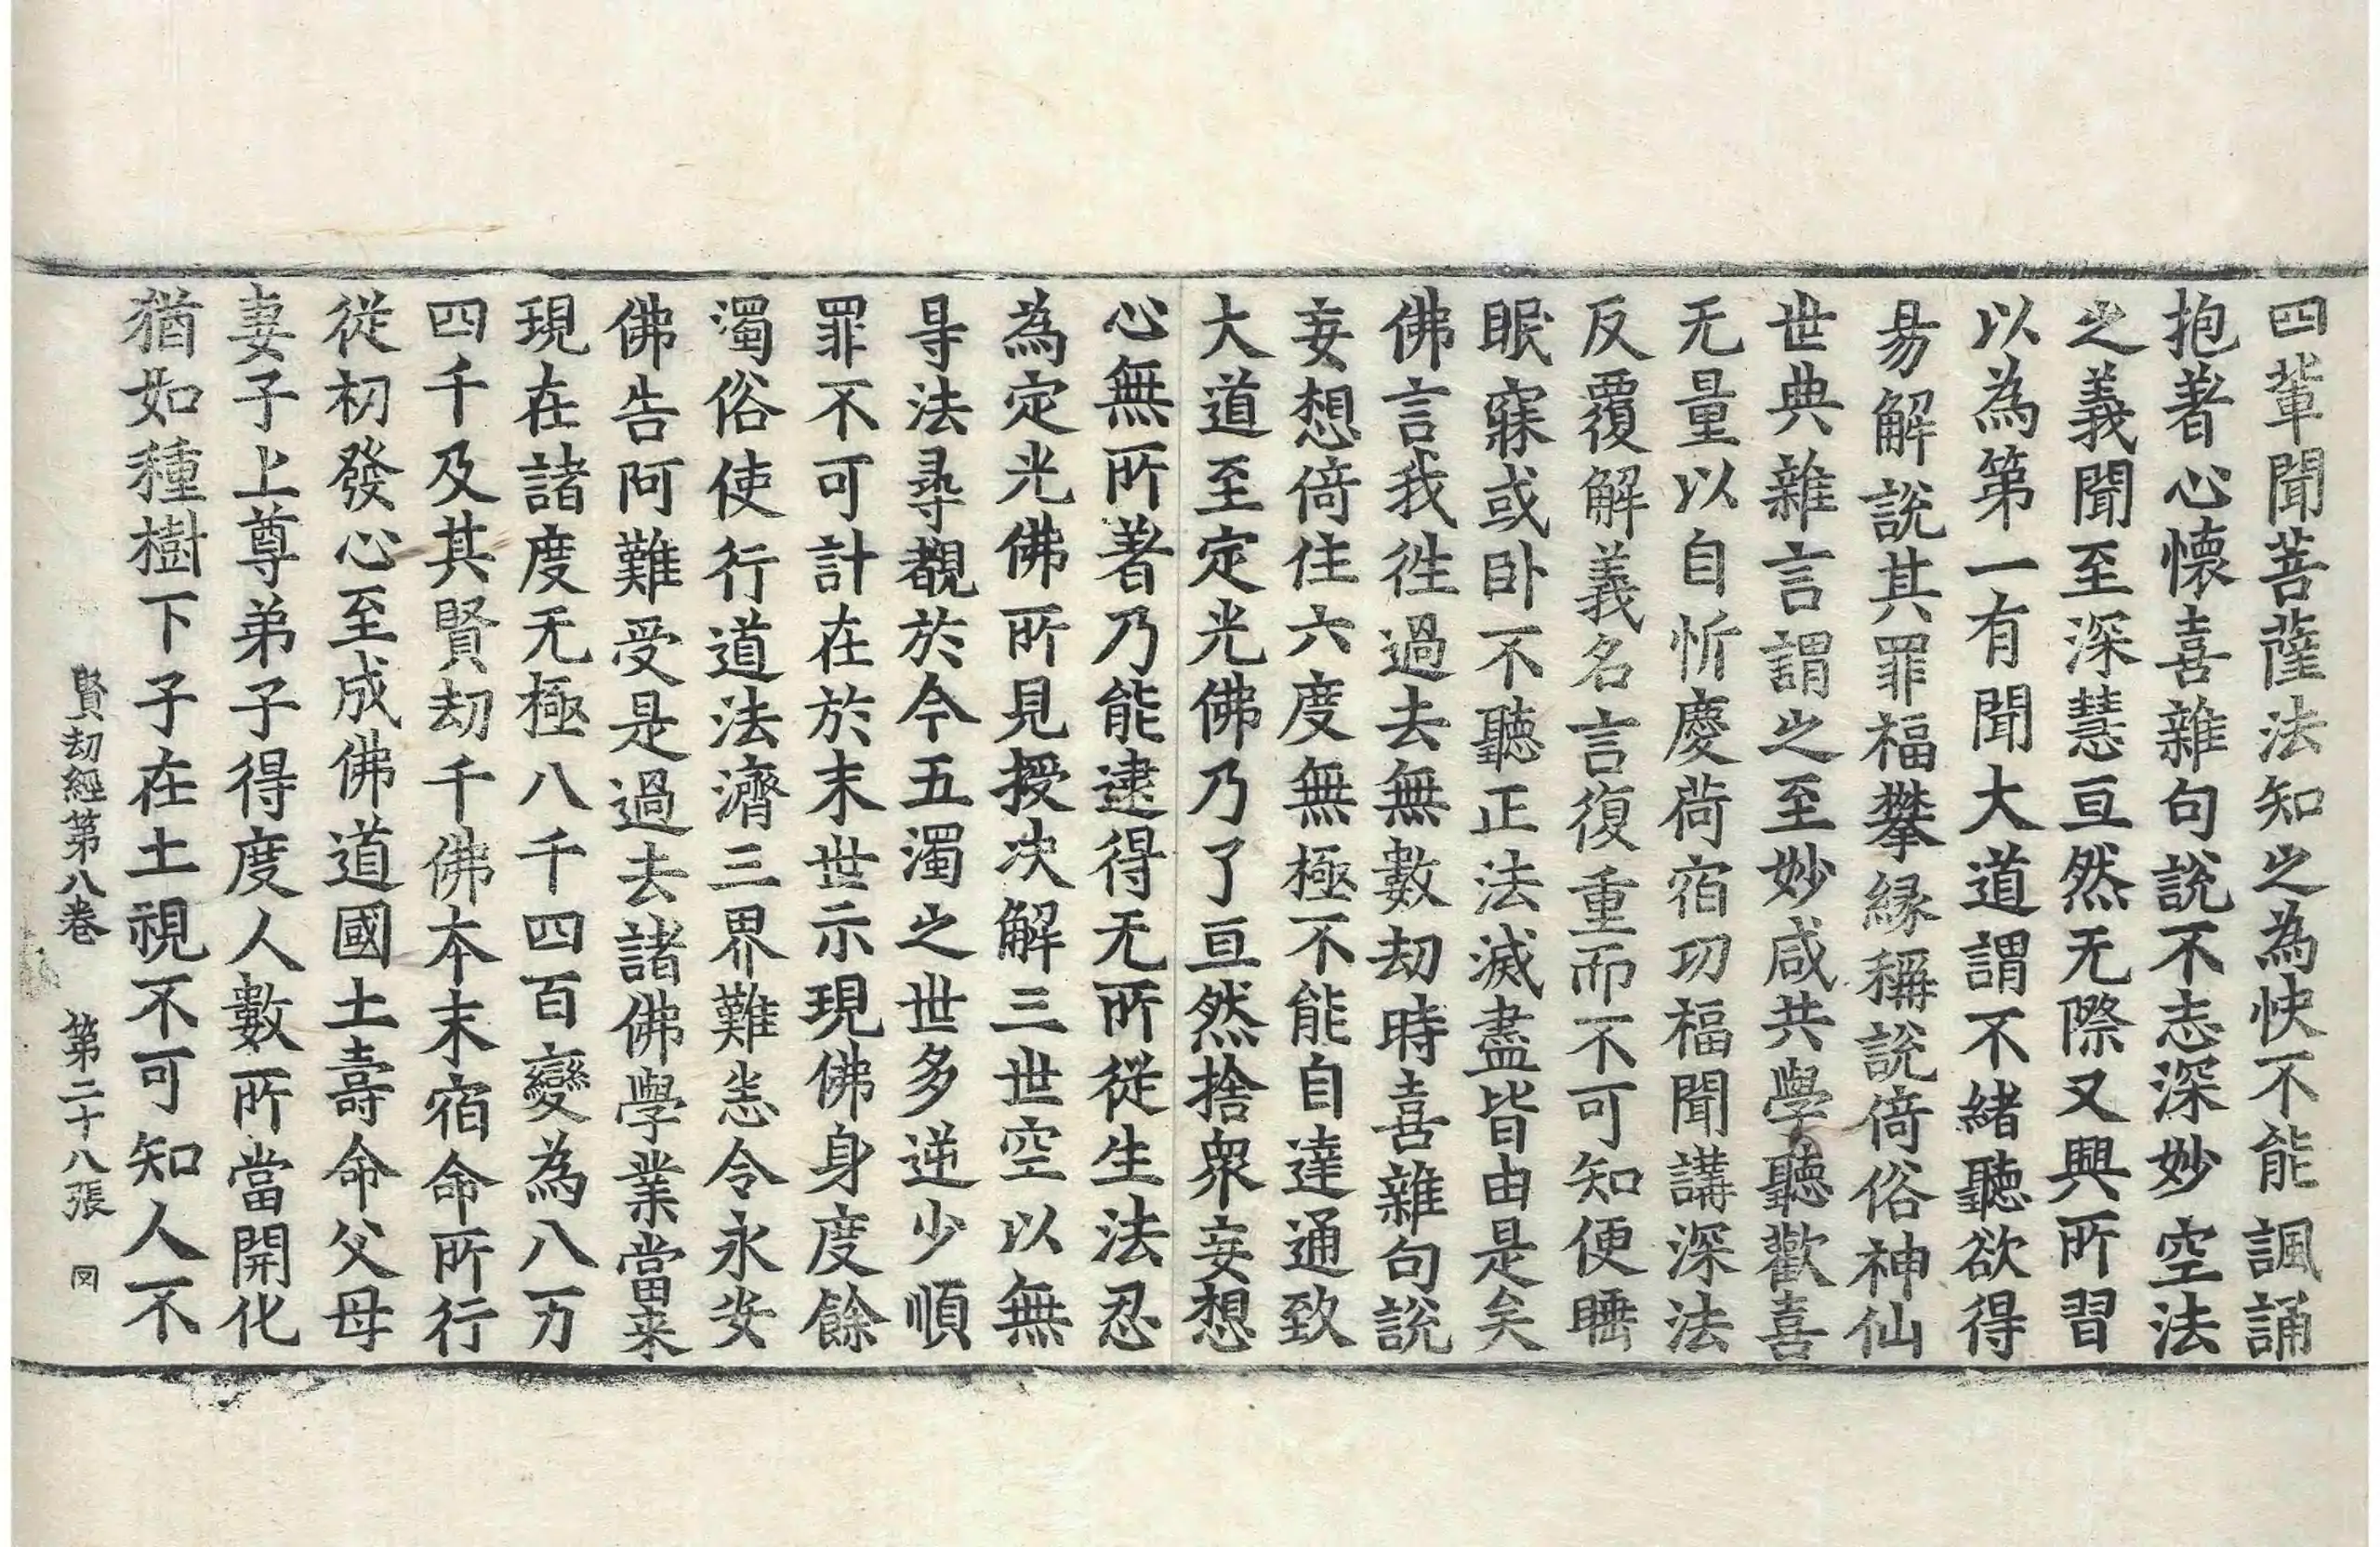 四輩聞菩薩法知之為快不能諷誦
抱著心懷喜雜句說不志深妙空法
之義聞至深慧亘然无際又興所習
以為第一有聞大道謂不緒聽欲得
易解說其罪福攀縁稱說倚俗神仙
世典雜言謂之至妙咸共學聽歡喜
无量以自忻慶荷宿功福聞講深法
反覆解義名言復重而不可知便睡
眠寐或卧不聽正法滅盡皆由是矣
佛言我徃過去無數劫時喜雜句說
妄想倚住六度無極不能自達通致
大道至定光佛乃了亘然捨衆妄想
心無所著乃能逮得无所從生法忍
為定光佛所見授决解三世空以無
㝵法㝷覩於今五濁之世多逆少順
罪不可計在於末世示現佛身度餘
濁俗使行道法濟三界難恙令永安
佛告阿難受是過去諸佛學業當来
現在諸度无極八千四百變為八万
四千及其賢劫千佛本末宿命所行
從初發心至成佛道國土壽命父母
妻子上尊弟子得度人數所當開化
猶如種樹下子在土視不可知人不
賢劫經第八卷 第二十八張 㓁